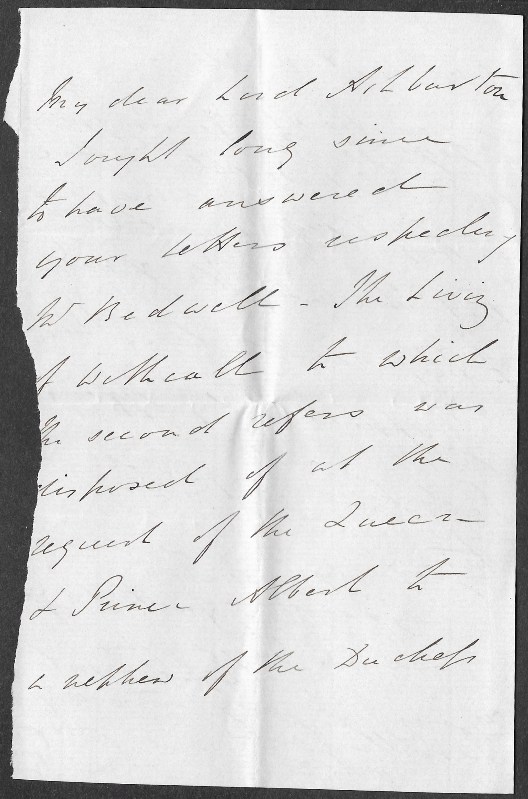 My dear Lord Ashburton
I ought long since
to have answered
your letters respecting
Mr Bedwell - The Living
of Withcall to which
the second refers was
disposed of at the
request of the Queen
& Prince Albert to
a nephew of the Duchess